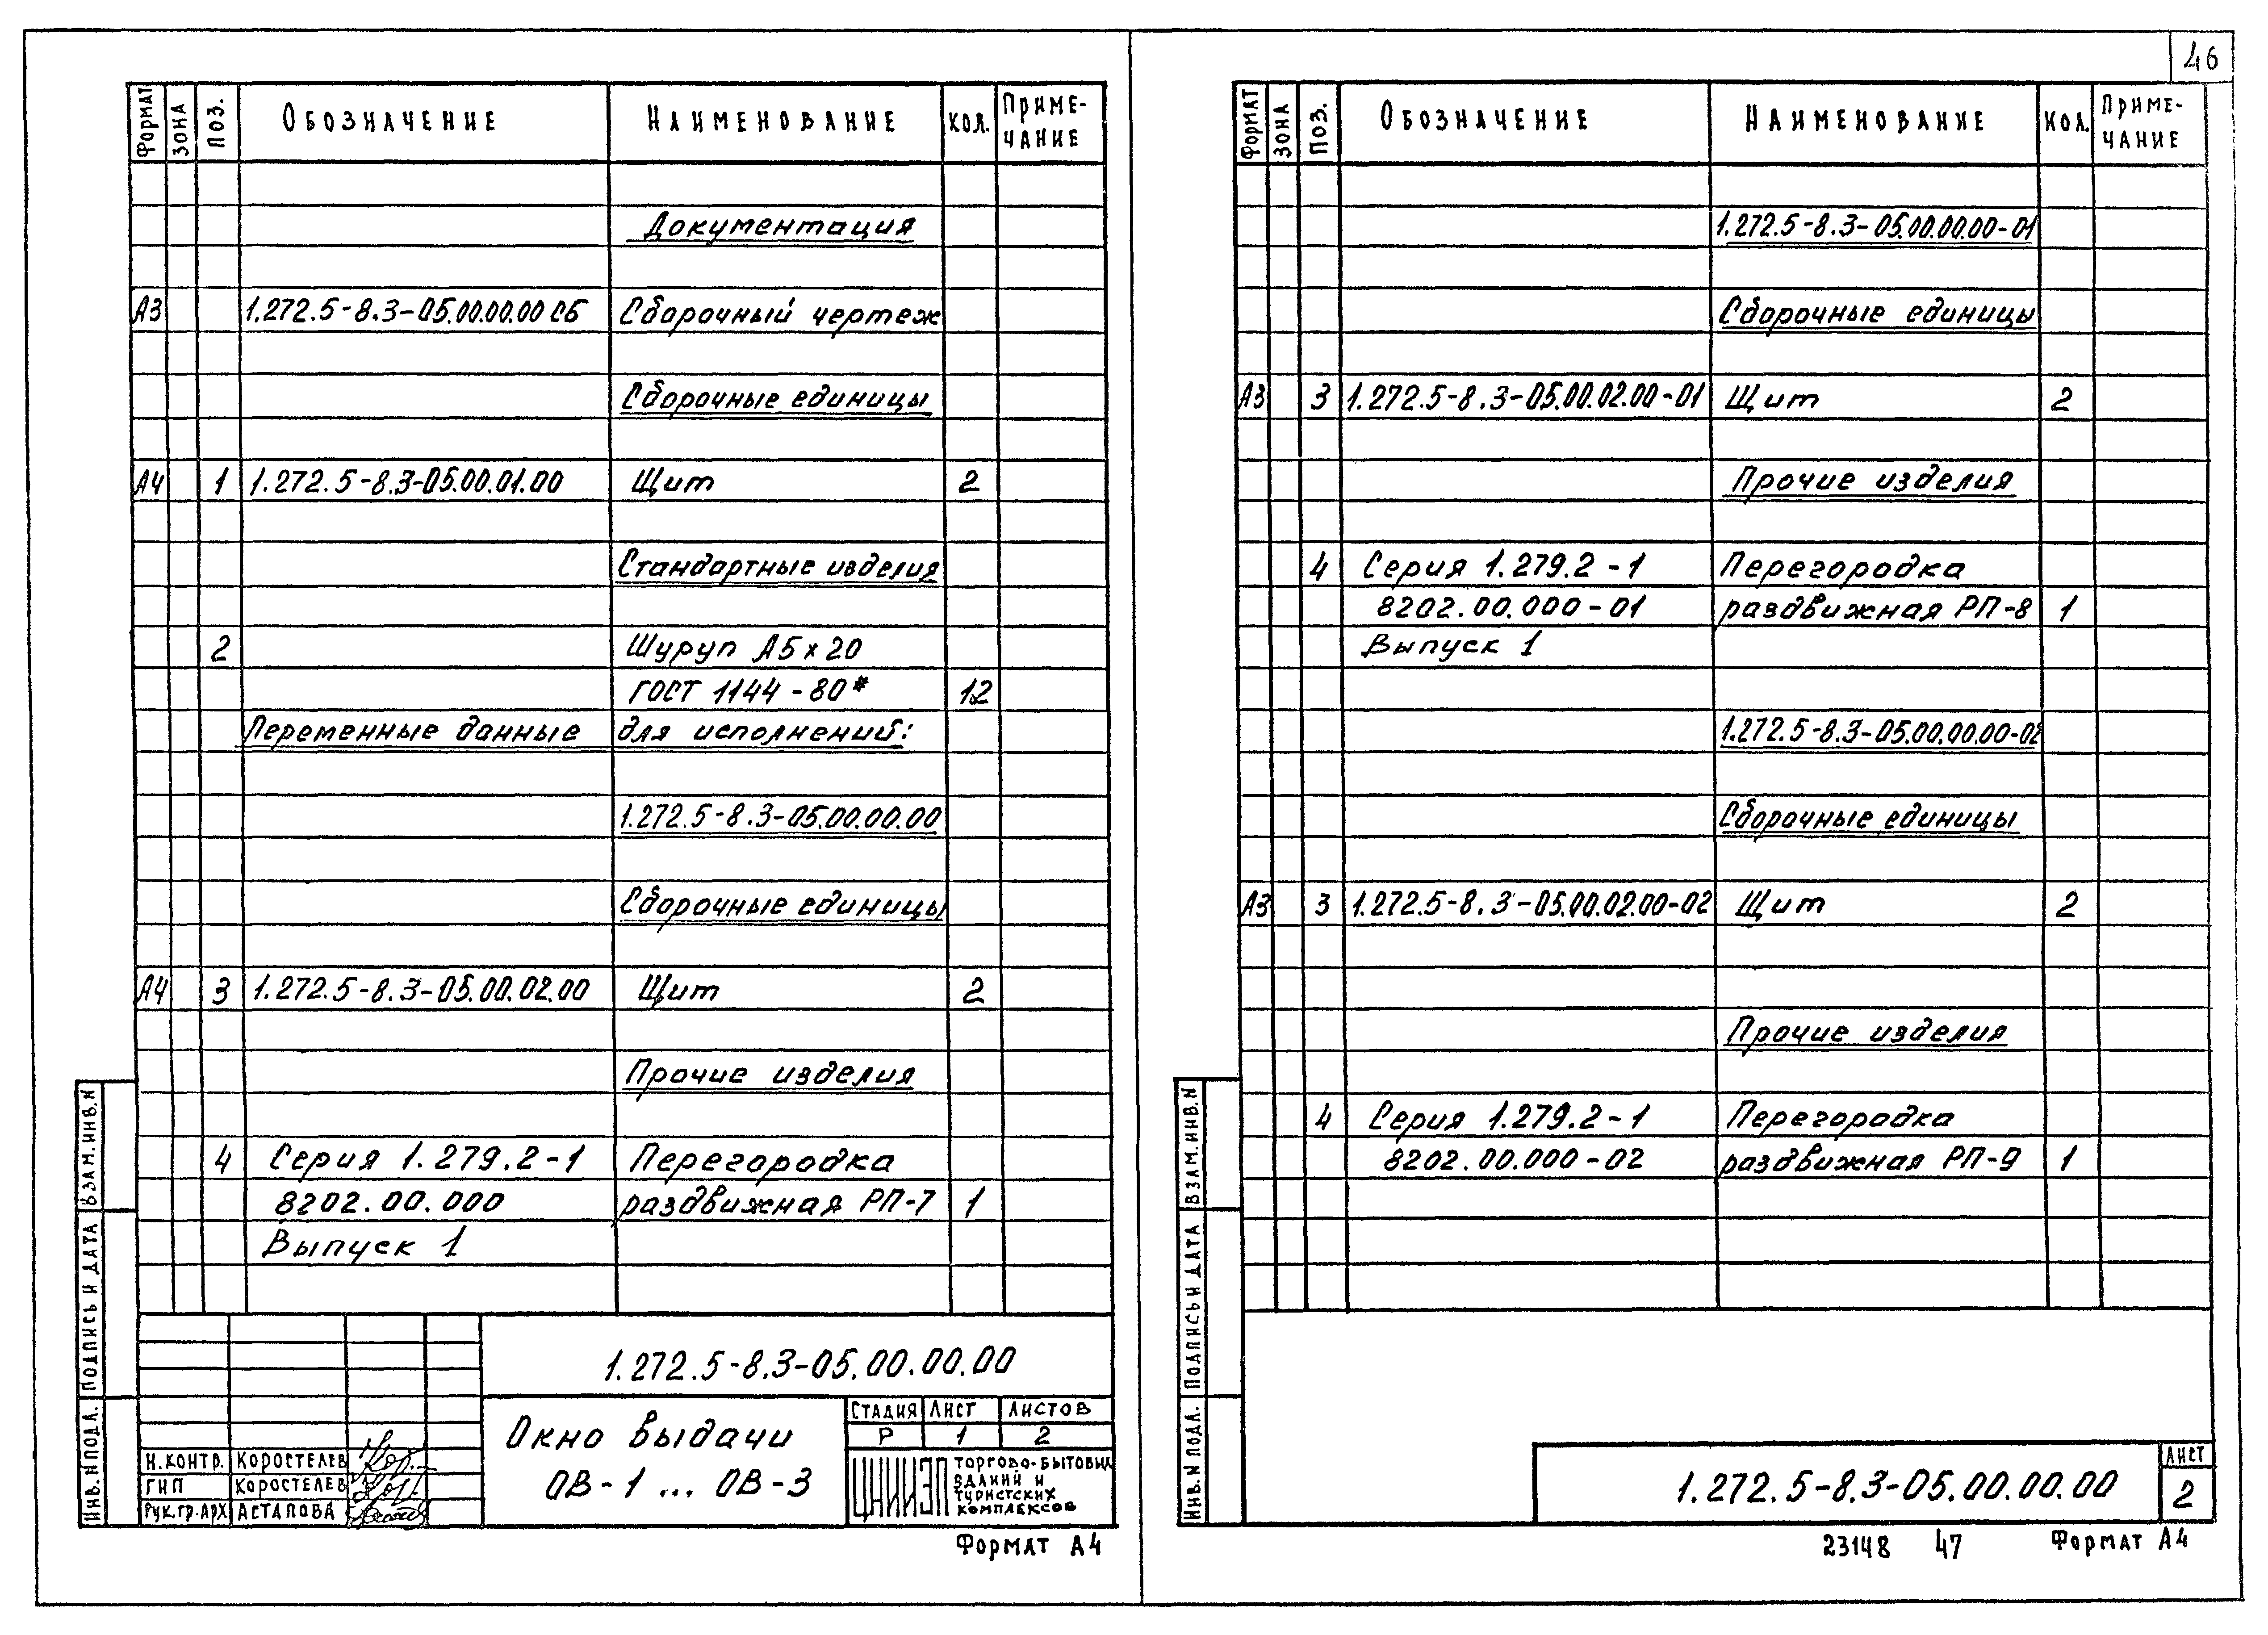 46
Формат Зона Поз. Обозначение Наименование Кол. Приме-
чание
Документация
А3 1.272.5-8.3-05.00.00.00 СБ Сборочный чертеж
Сборочные единицы
А4 1 1.272.5-8.3-05.00.01.00 Щит 2
Стандартные изделия
2 Шуруп А5х20
ГОСТ 1144-80* 12
Переменные данные для исполнений:
1.272.5-8.3-05.00.00.00
Сборочные единицы
А4 3 1.272.5-8.3-05.00.02.00 Щит 2
Прочие изделия
4 Серия 1.279.2-1 Перегородка
8202.00.000 раздвижная РП-7 1
Выпуск 1
1.272.5-8.3-05.00.00.00
Окно выдачи
ОВ-1 ... ОВ-3
Стадия Лист Листов
Р 1 2
ЦНИИЭП торгово-бытовых
зданий и
туристских
комплексов
Н.контр. Коростелев
ГИП Коростелев
Рук.гр.арх Астапова
Инв.N подл. Подпись и дата Взам.инв.N
Формат А4
Формат Зона Поз. Обозначение Наименование Кол. Приме-
чание
1.272.5-8.3-05.00.00.00-01
Сборочные единицы
А3 3 1.272.5-8.3-05.00.02.00-01 Щит 2
Прочие изделия
4 Серия 1.279.2-1 Перегородка
8202.00.000-01 раздвижная РП-8 1
Выпуск 1
1.272.5-8.3-05.00.00.00-02
Сборочные единицы
А3 3 1.272.5-8.3-05.00.02.00-02 Щит 2
Прочие изделия
4 Серия 1.279.2-1 Перегородка
8202.00.000-02 раздвижная РП-9 1
Инв.N подл. Подпись и дата Взам.инв.N
1.272.5-8.3-05.00.00.00
Лист
2
23148 47 Формат А4